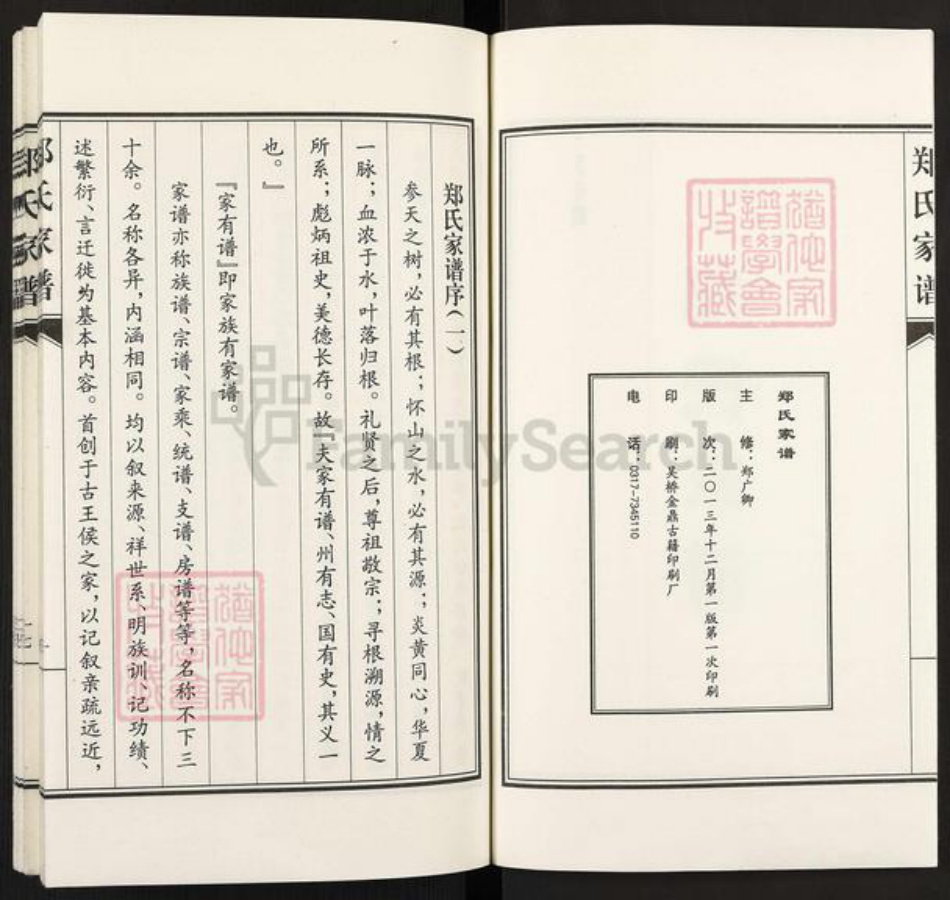 郑氏家谱
猶他家譜學會收藏
郑氏家谱
主修：郑广卿
版次：二〇一三年十二月第一版第一次印刷
印刷：吴桥金鼎古籍印刷厂
电话：0317-7345110
郑氏家谱序（一）
参天之树，必有其根；怀山之水，必有其源；炎黄同心，华夏
一脉；血浓于水，叶落归根。礼贤之后，尊祖敬宗；寻根溯源，情之
所系；彪炳祖史，美德长存。故『夫家有谱、州有志、国有史，其义一
也。』
『家有谱』即家族有家谱。
家谱亦称族谱、宗谱、家乘、统谱、支谱、房谱等等，名称不下三
十余。名称各异，内涵相同。均以叙来源、祥世系、明族训、记功绩、
述繁衍、言迁徙为基本内容。首创于古王侯之家，以记叙亲疏远近，
猶他家譜學會收藏
郑氏家谱
郑氏家谱
FamilySearch